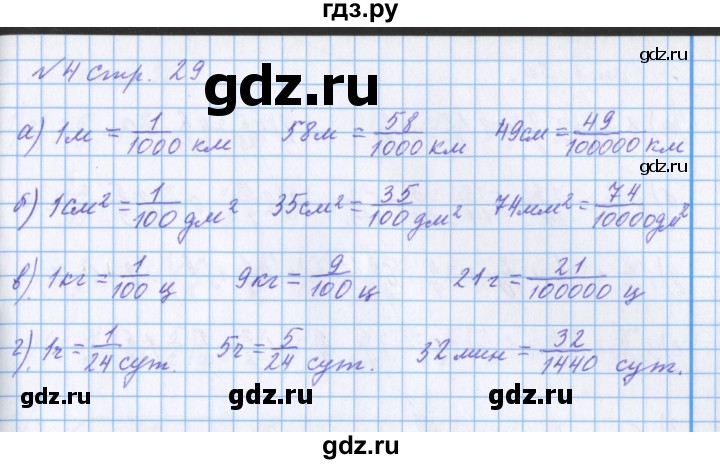 гдз.ру
gdz.ru
№4 стр. 29
gdz.ru
а) 1м = 1/1000 км 58м = 58/1000 км 49см = 49/100000 км
gdz.ru
б) 1см² = 1/100 дм² 35см² = 35/100 дм² 74мм² = 74/10000 дм²
в) 1кг = 1/100 ц 9кг = 9/100 ц 21г = 21/100000 ц
г) 1ч = 1/24 сут. 5ч = 5/24 сут. 32мин = 32/1440 сут.
gdz.ru gdz.ru gdz.ru
gdz.ru